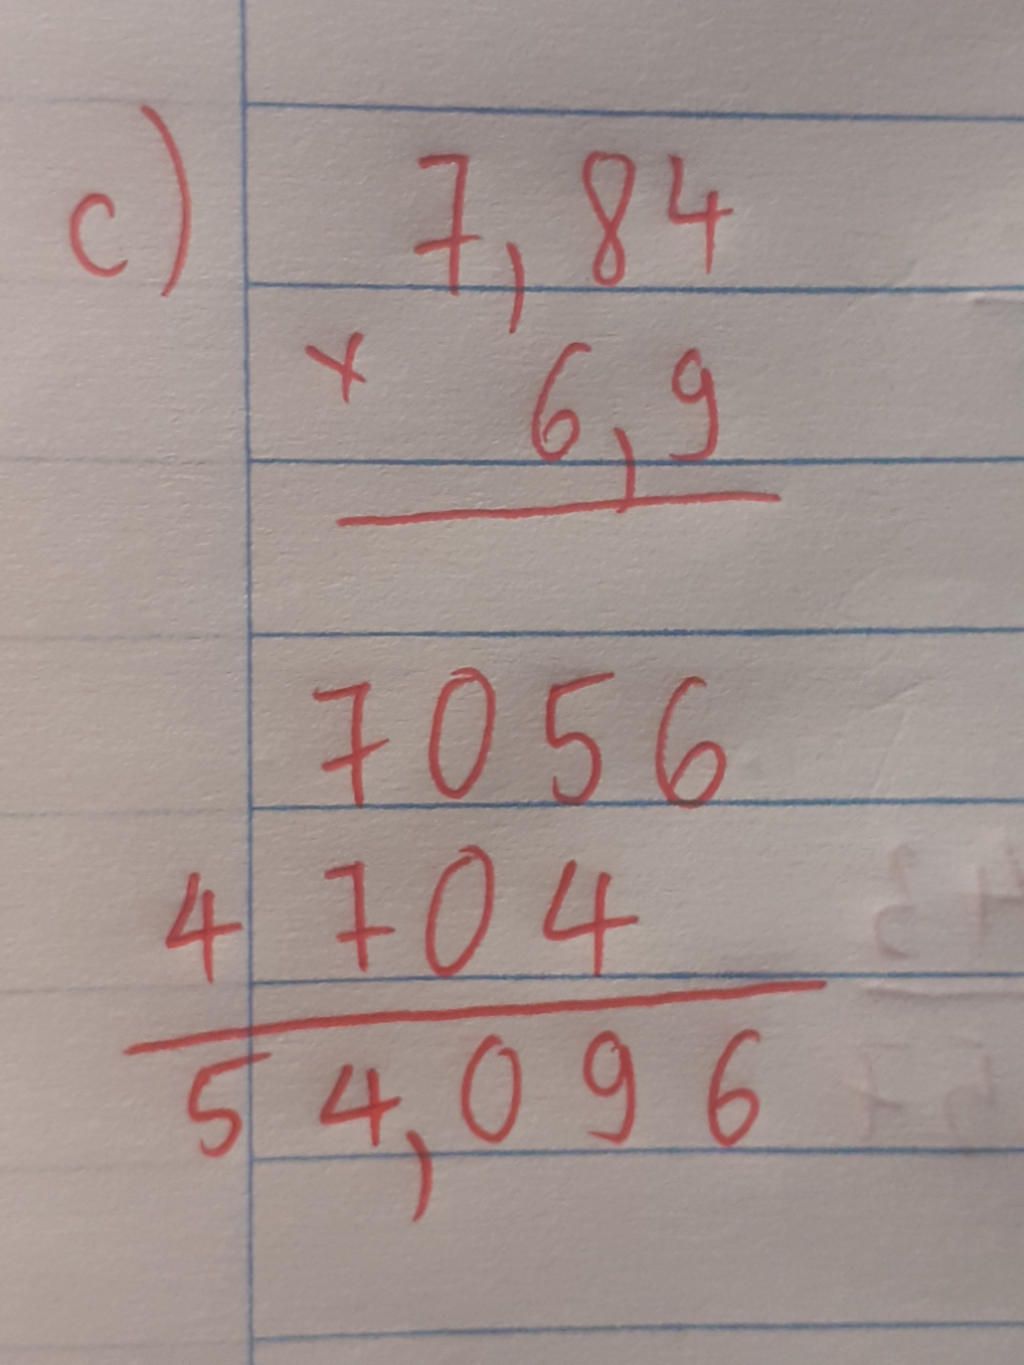 c) 7,84
× 6,9
7056
4704
54,096